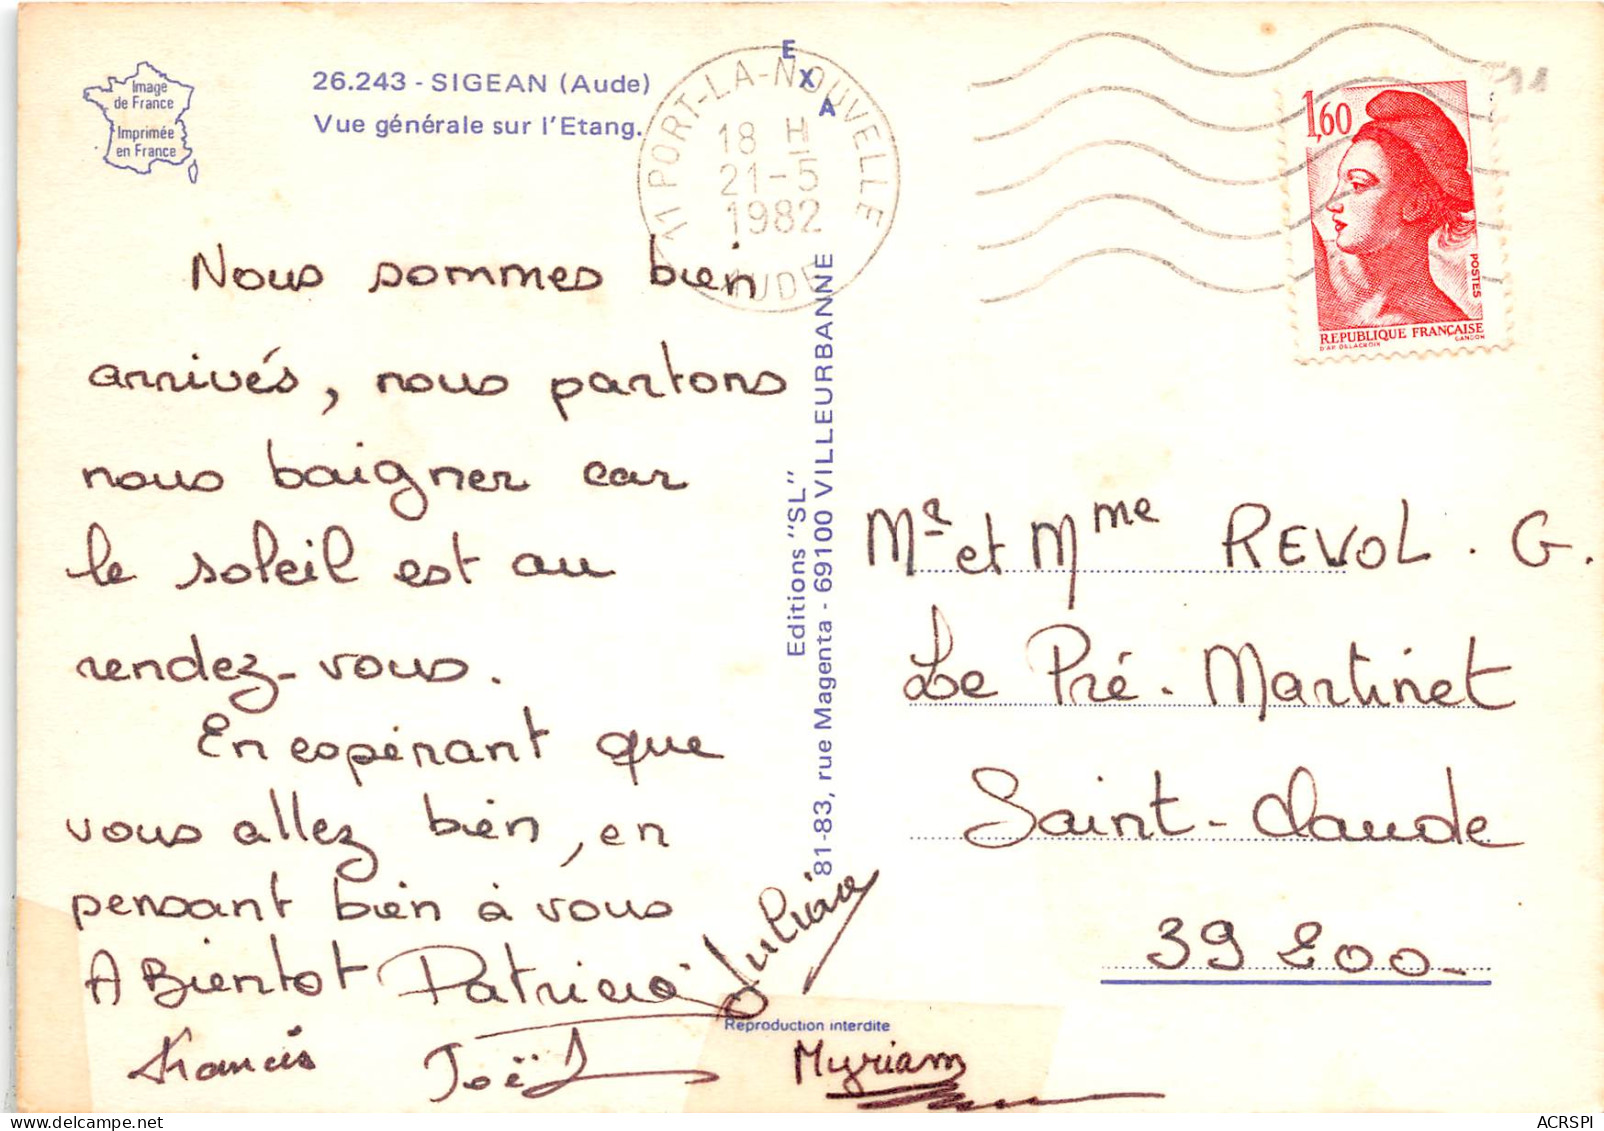 Image
de France
Imprimée
en France
26.243 - SIGEAN (Aude)
Vue générale sur l'Etang.
EXA
11 PORT-LA-NOUVELLE
18 H
21-5
1982
AUDE
1,60
POSTES
REPUBLIQUE FRANÇAISE
D'AP. DELACROIX
GANDON
Nous sommes bien
arrivés, nous partons
nous baigner car
le soleil est au
rendez-vous.
En espérant que
vous allez bien, en
pensant bien à vous
A Bientot Patricia Juliane
Francis Joël Myriam
Editions "SL"
81-83, rue Magenta - 69100 VILLEURBANNE
Reproduction interdite
Mr et Mme REVOL . G.
Le Pré. Martinet
Saint-Claude
39200
ACRSPI